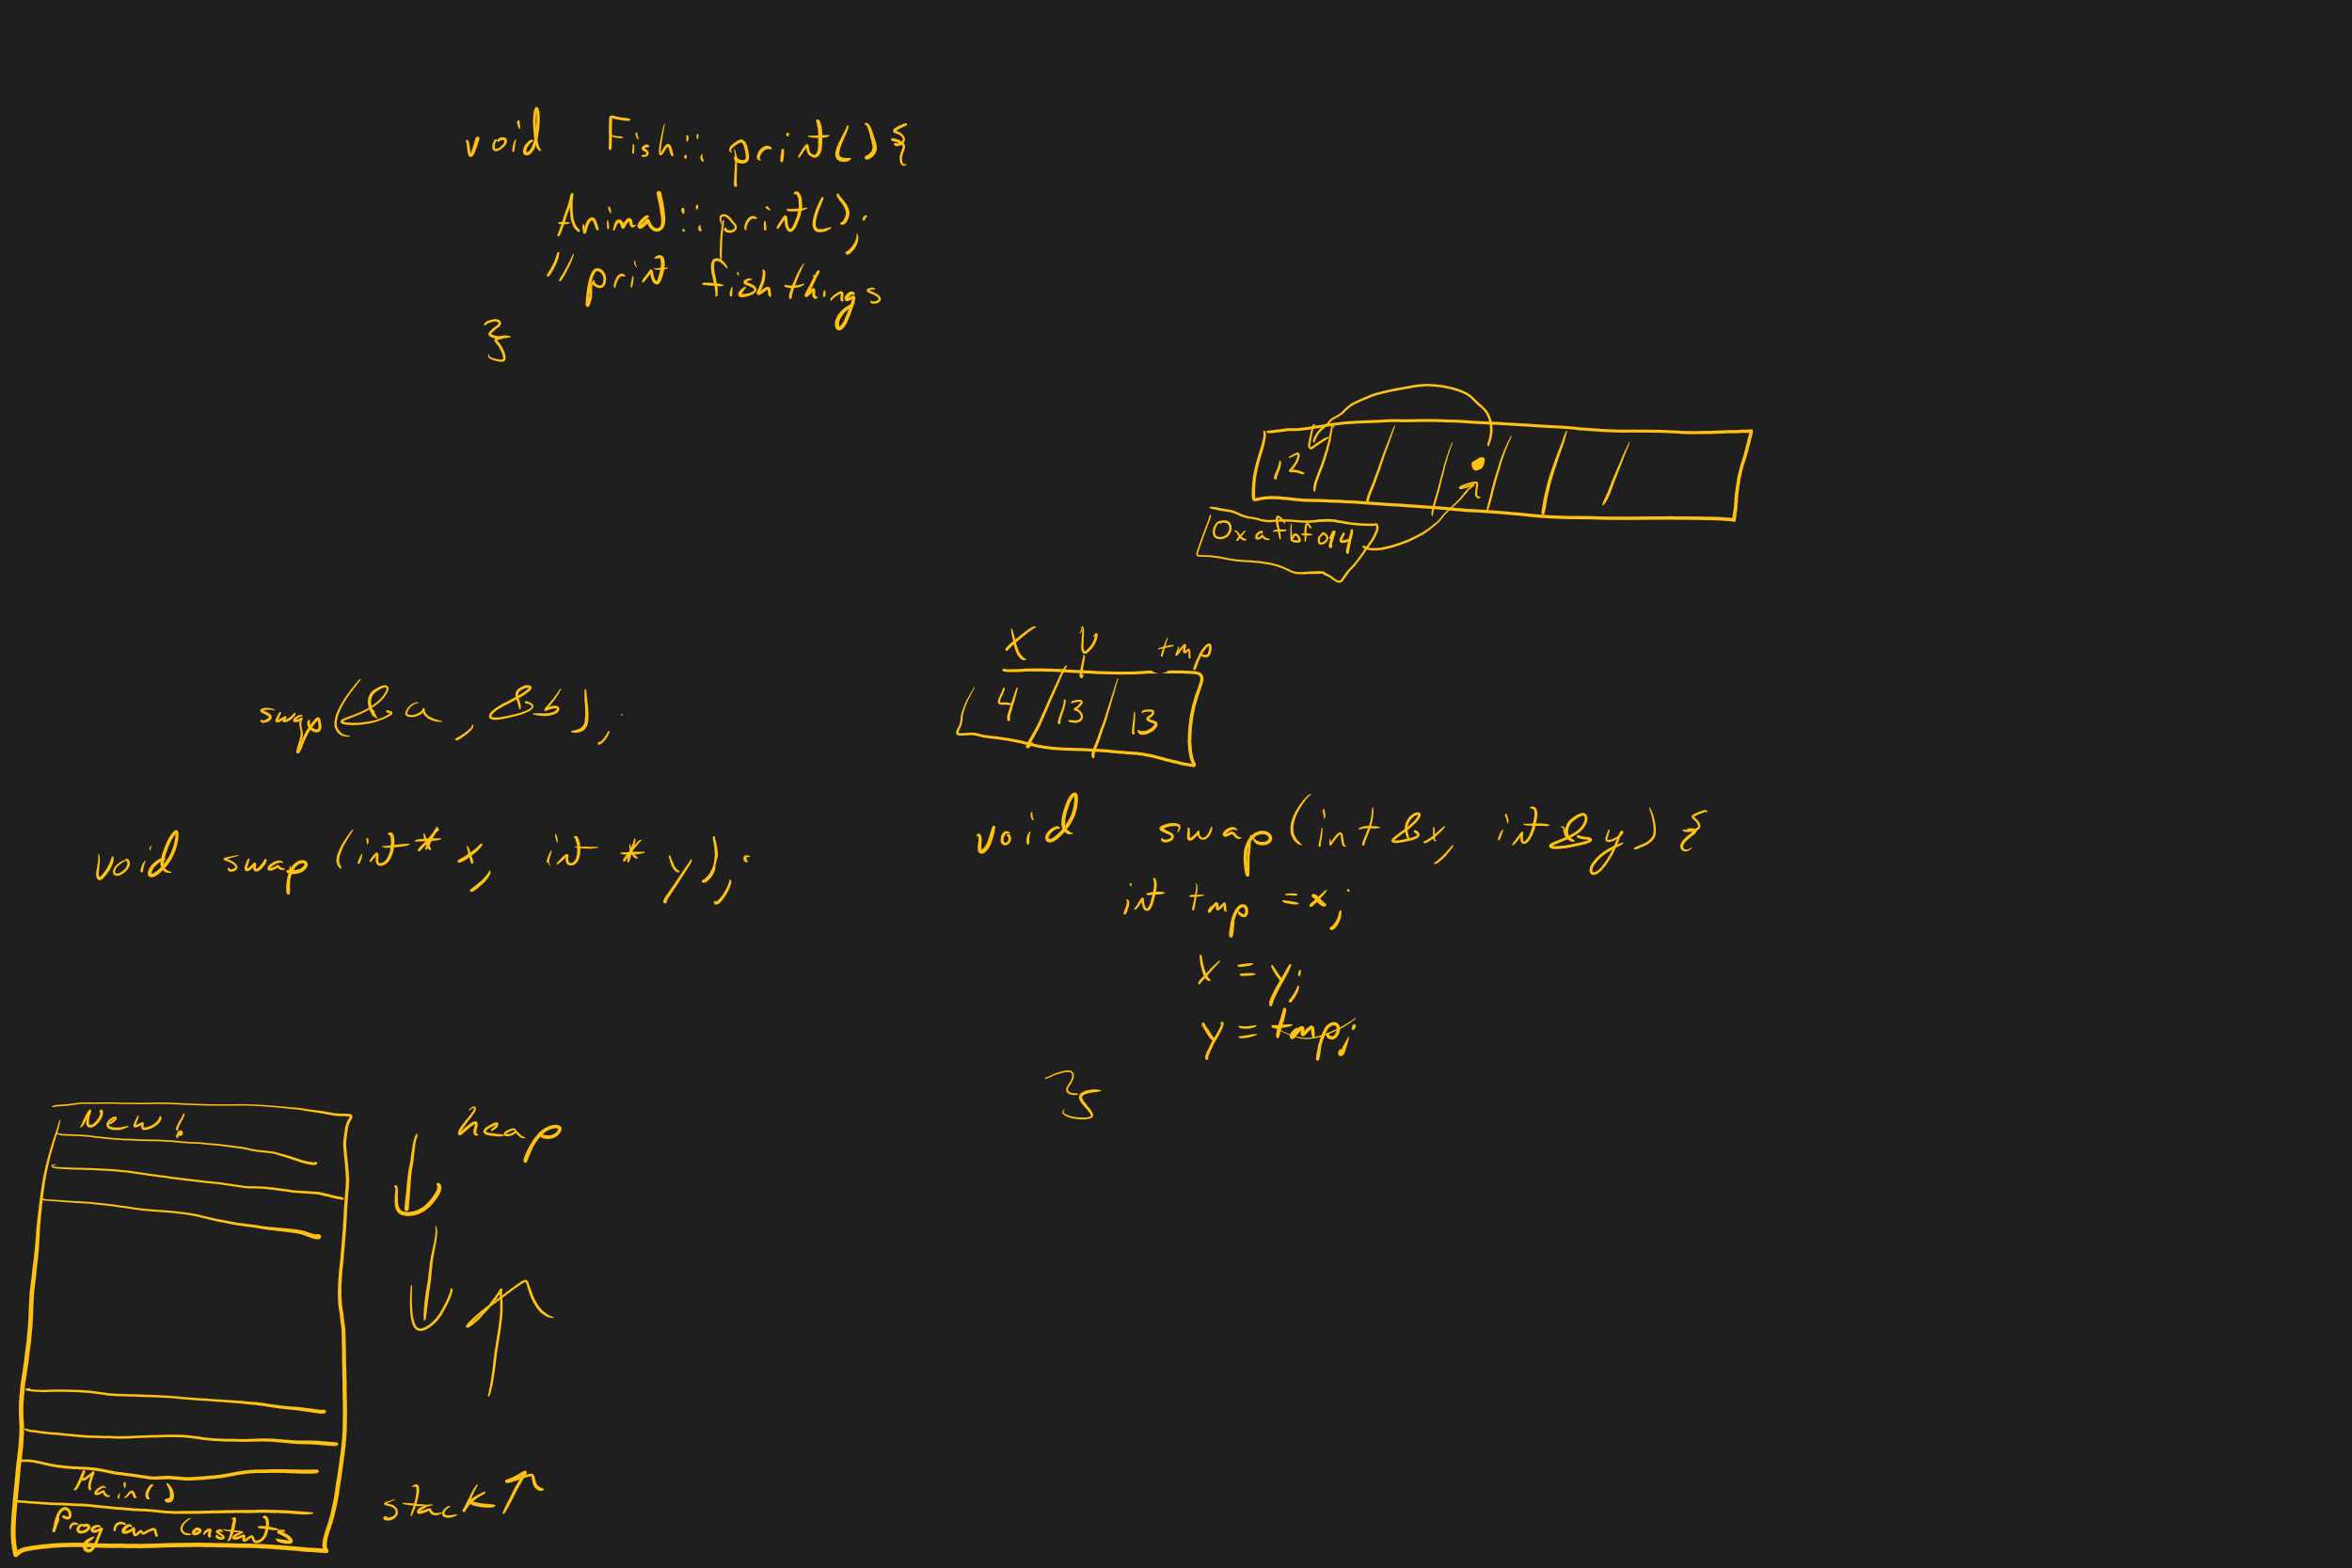 void Fish::print(){
Animal::print();
// print fish things
}
12
x y tmp
4 13 13
swap(&a, &b);
void swap (int* x, int* y);
void swap (int &x, int &y) {
int tmp = x;
x = y;
y = tmp;
}
New!
heap
Main()
stack
Program Constants